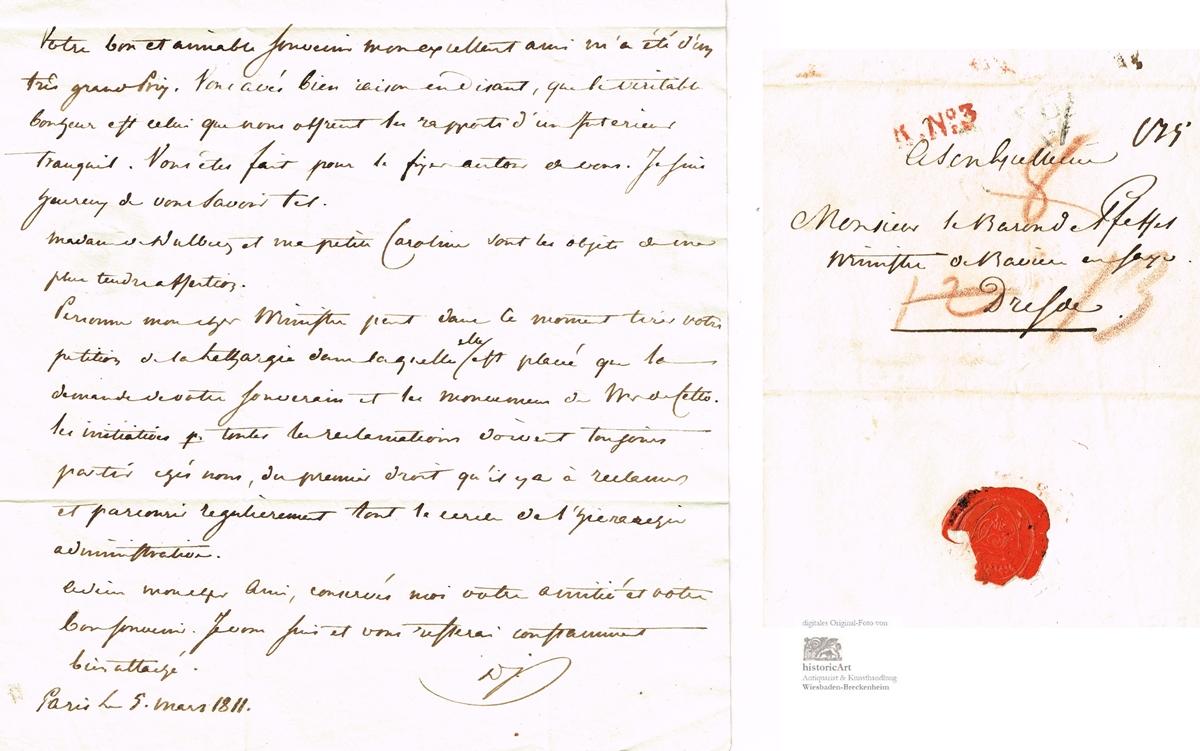 Votre bon et aimable souvenir mon excellent ami m'a été d'un
très grand Prix. Vous avés bien raison en disant, que le véritable
bonheur est celui que nous offrent les rapports d'un Interieur
tranquil. Vous etes fait pour le fixer autour de vous. Je suis
heureux de vous savoir tel.
Madame de et ma petite Caroline sont les objets de ma
plus tendre affection.
Personne mon cher Ministre peut dans ce moment tirer votre
petition de la lethargie dans laquelle elle est placé que la
demande de votre souverain et les de Mr de Cetto.
les initiatives p. toutes les reclamations doivent toujours
partir chés nous, du premier droit qu'il y a à reclamer
et parcourir regulièrement tout le cercle de l'hierarchie
administrative.
adieu mon cher Ami, conservés moi votre amitié et votre
bon souvenir. Je vous suis et vous resterai constamment
bien attaché.
Paris le 5. mars 1811.
K. No. 3
A Son Excellence
8
Monsieur le Baron de Pfeffel
Ministre de Baviere en Saxe.
12
13
Dresde.
digitales Original-Foto von
historicArt
Antiquariat & Kunsthandlung
Wiesbaden-Breckenheim